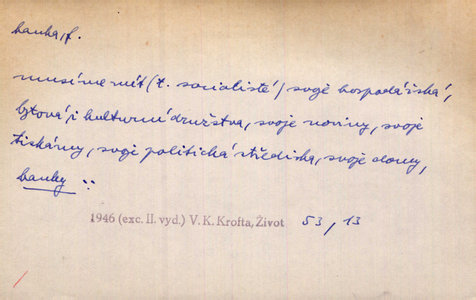 banka, f.
musíme mít (t. socialisté) svoje hospodářská,
bytová i kulturní družstva, svoje noviny, svoje
tiskárny, svoje politická střediska, svoje domy,
banky ::
1946 (exc. II. vyd.) V. K. Krofta, Život 53, 13